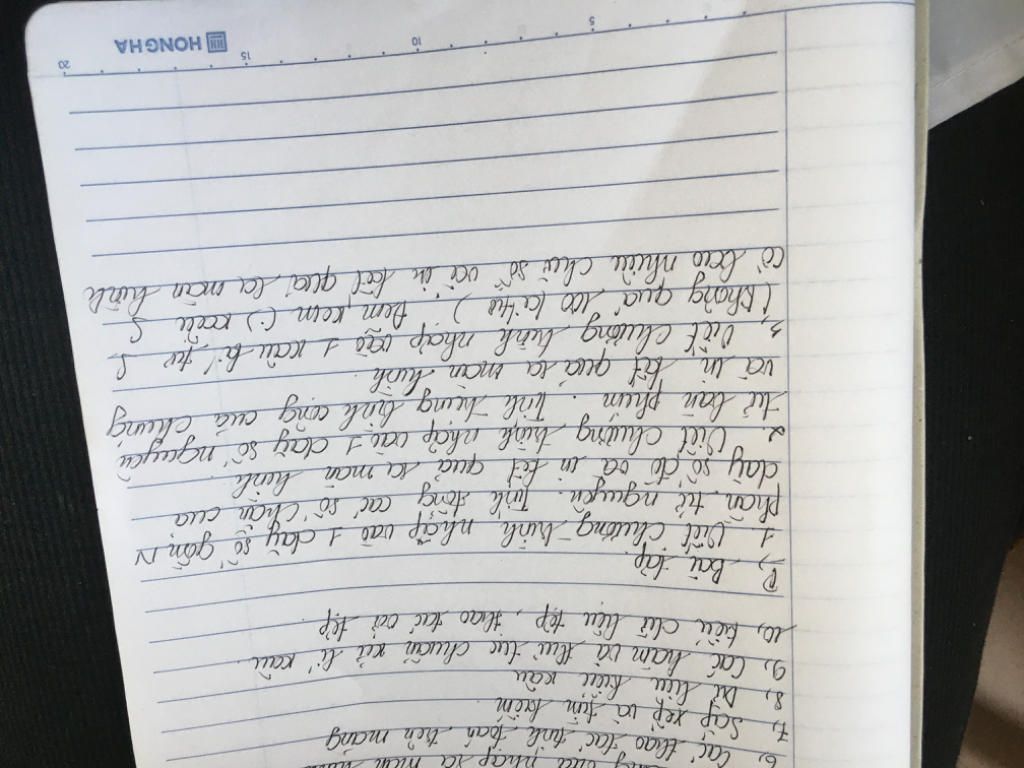 nhập ra màn hình
6, Các thao tác tính toán trên mảng
7, Sắp xếp và tìm kiếm
8, Dữ liệu kiểu xâu
9, Các hàm và thủ tục chuẩn xử lí xâu.
10, kiểu dữ liệu tệp, thao tác với tệp
P, Bài tập.
1 Viết chương trình nhập vào 1 dãy số gồm N
phần tử nguyên. Tính tổng các số chẵn của
dãy số đó và in kết quả ra màn hình.
2. Viết chương trình nhập vào 1 dãy số nguyên
từ bàn phím. Tính trung bình cộng của chúng
và in kết quả ra màn hình.
3, Viết chương trình nhập vào 1 xâu kí tự S
(không quá 100 kí tự). Đếm xem xâu S
có bao nhiêu chữ số và in kết quả ra màn hình
5 10 15 20
HONG HA